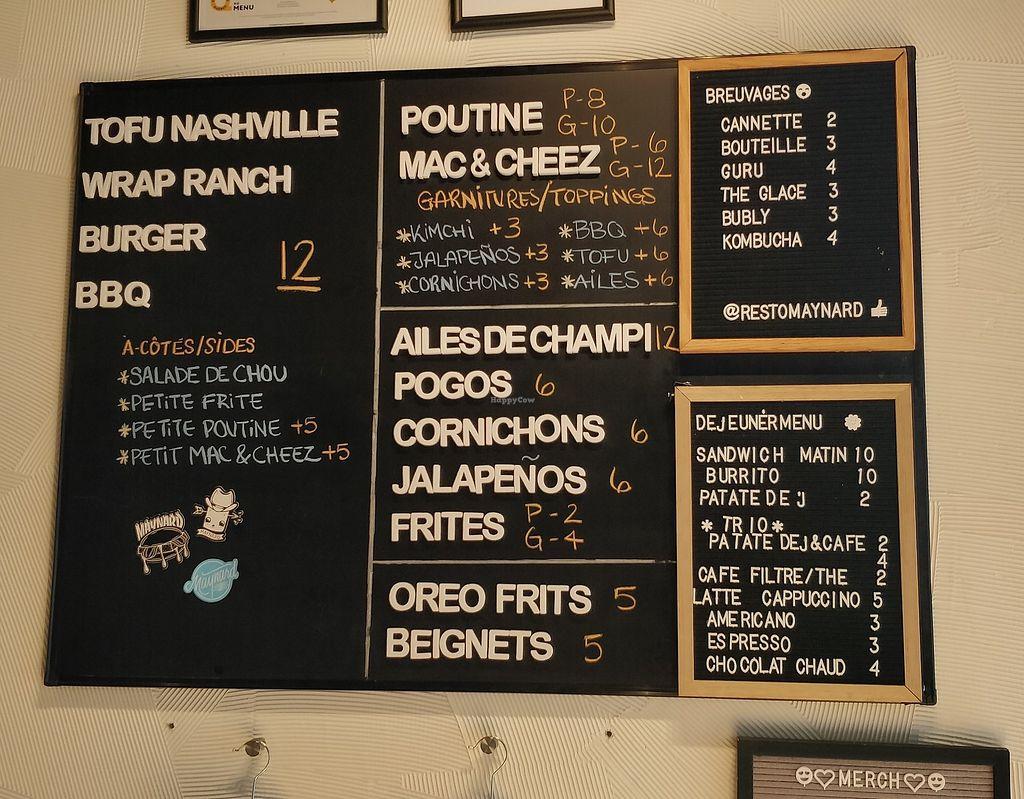 MENU
TOFU NASHVILLE
WRAP RANCH
BURGER
BBQ
12
À-CÔTÉS/SIDES
*SALADE DE CHOU
*PETITE FRITE
*PETITE POUTINE +5
*PETIT MAC & CHEEZ +5
MAYNARD
Maynard
POUTINE P-8
G-10
MAC & CHEEZ P-6
G-12
GARNITURES/TOPPINGS
*KIMCHI +3 *BBQ +6
*JALAPEÑOS +3 *TOFU +6
*CORNICHONS +3 *AILES +6
AILES DE CHAMPI 12
POGOS 6
HappyCow
CORNICHONS 6
JALAPEÑOS 6
FRITES P-2
G-4
OREO FRITS 5
BEIGNETS 5
BREUVAGES
CANNETTE 2
BOUTEILLE 3
GURU 4
THE GLACE 3
BUBLY 3
KOMBUCHA 4
@RESTOMAYNARD
DEJEUNÉRMENU
SANDWICH MATIN 10
BURRITO 10
PATATE DEJ 2
* TRIO *
PATATE DEJ&CAFE 2
4
CAFE FILTRE/THE 2
LATTE CAPPUCCINO 5
AMERICANO 3
ESPRESSO 3
CHOCOLAT CHAUD 4
MERCH